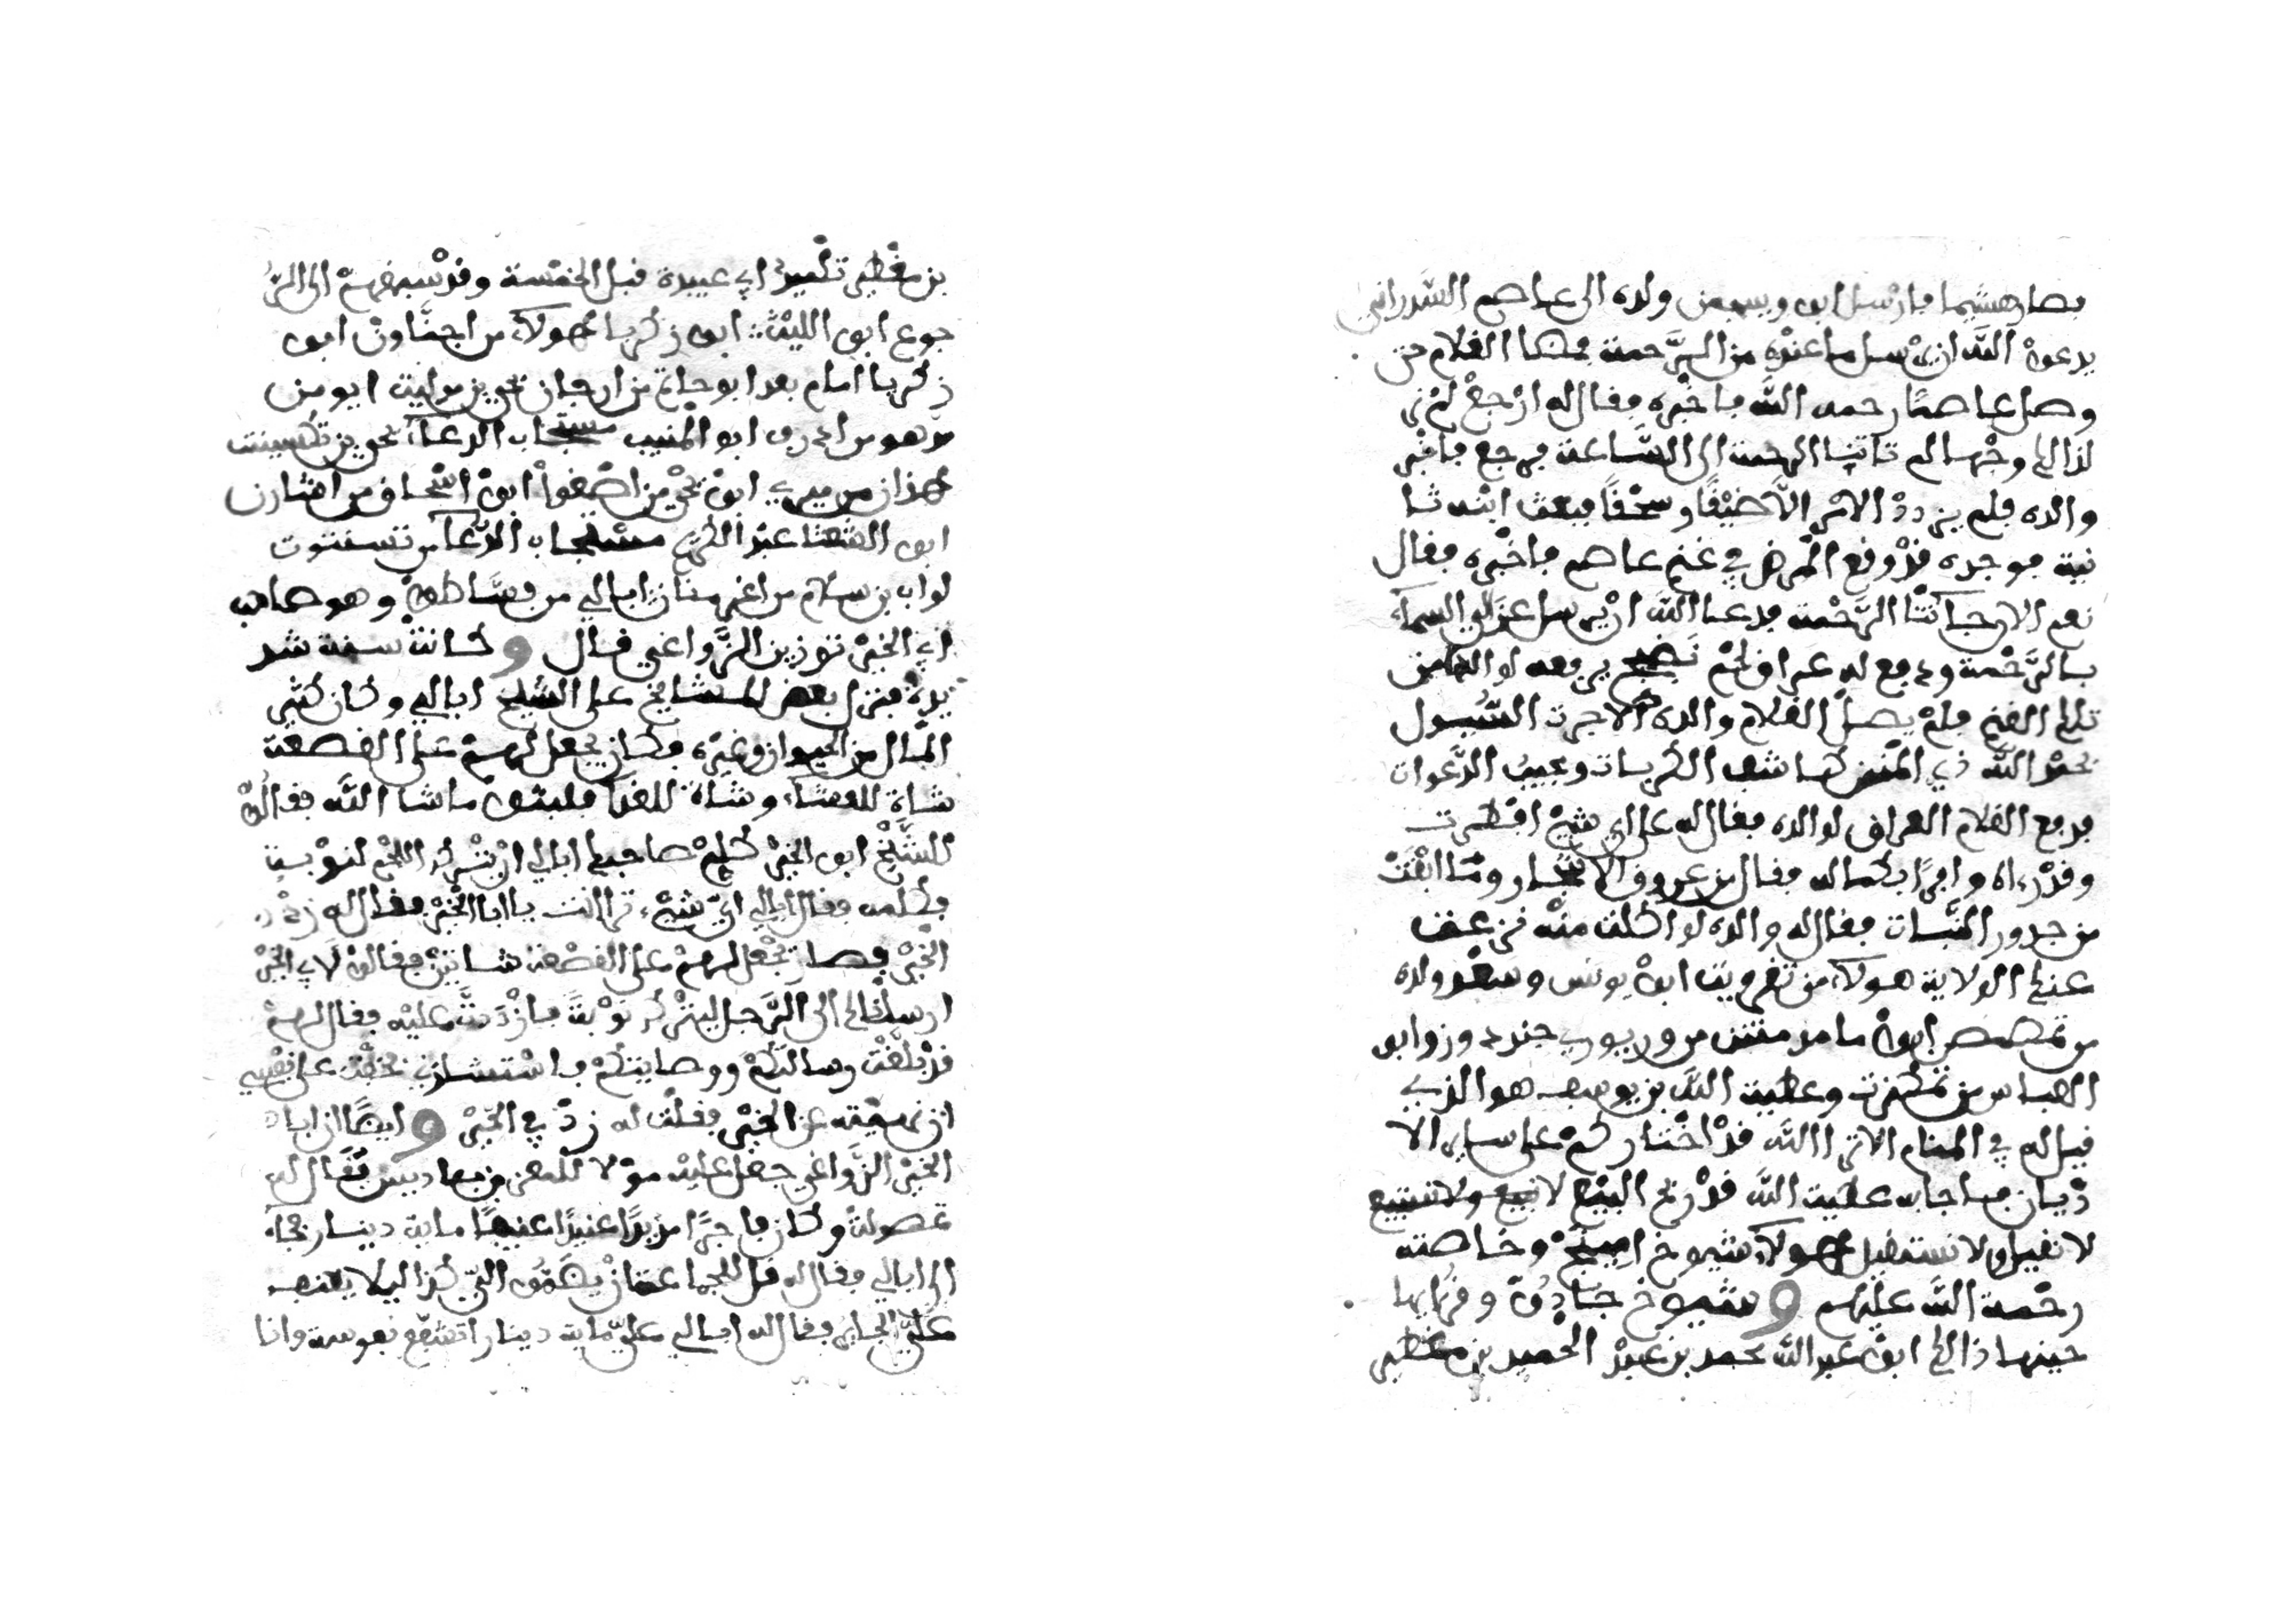 فصار هشيما فارسل ابو ويسجمن ولده الى عاصم السدراتي
يدعوا الله ان يرسل ما عنده من الرحمة فمضا الغلام حتى
وصل عاصمًا رحمه الله فاخبره فقال له ارجع لم نر
لذالك وجْها لم تاتنا الرحمة الى الساعة فرجع فاخبر
والده فلم يزدد الامر الا ضيقًا وسحْقًا فبعث ابنه ثا
نية فوجده قد وقع المرض في غنم عاصم فاخبره فقال
نعم الان جاءتنا الرحمة فدعا الله ان يرسل عزالي السماء
بالرحمة ودفع له عراق لحم يرفعه لوالده من
تلك الغنم فلم يصل الغلام والده الا جرت السيول
بحمد الله ذي المنن كاشف الكربات ومجيب الدعوات
فدفع الغلام العراق لوالده فقال له على اي شيْء افطرت
وقد رءاه وافرًا بكماله فقال من عروق الاشجار وما ابقت
من جدور النبات فقال له والده لو اكلت منه في عنف
عنك الولاية هولاء من تغرويت ابو يونس وسعد ولده
من تمصمص ابو مامد من وريوري جندوز وابو
العباس من وعطية الله بن يوسف هو الذي
قيل له في المنام الا ترى الله قد اختاركم على ساير الا
ديان فاجابه عطية الله قد ربح البيع لا نبيع ولا نبتيع
لا نقيل ولا نستقيل هولاء شيوخ اميناج وخاصته
رحمة الله عليهم وشيوخ جنادون وقراها
حينها ذالك ابو عبد الله محمد بن عبد الحميد بن مغطير
بن مغطير تلميذ ابي عبيدة قبل الخمسة وقد سبقهم الى الر
جوع ابو الليث ابو زكريا هولاء من اجناون ابو
زكريا امام بعد ابو حاتم من ارجان تحويز مواليت ابو من
من هو من ادرف ابو المنيب مستجاب الدعاء تحويز تكسينت
هوذان من ميري ابو يحي من ابو اسحاق من
ابو الشعثا عبد الكريم مستجاب الدعاء من تسنتوت
لواب بن سلام من اغرمنان ابالي من فساطوا وهو صاحب
ابي الخير توزين الزواغي قال وكانت سنة شد
يدة فنزل بعض المشايخ على الشيخ ابالي وكان كثير
المال من الحيوان وغيره فكان يجعل لهم على القصعة
شاة للعشاء وشاة للغداء فلبثوا ما شا الله فقالوا
للشيخ ابو الخير كلم صاحبك ابالي ان يترك اللحم لنوْبة
فكلمه فقال ابالي اي شيء تراانت يا ابا الخير فقال له زد
الخير فصار يجعل لهم على القصعة شاتين فقالوا لابي الخير
ارسلناك الى الرجل ليترك نوْبة فازْددت عليه فقال لهم
قد بلغت رسالتكم ووصايتكم فاستشارني فخفت على نفسي
ان نمنعه عن الخير فقلت له زد في الخير وايضًا ان ابا
الخير الزواغي جعل عليه موْلا للمعز بن باديس يقال له
تمصولت وكان فاجرًا مريدًا عنيدًا ماية دينار فجاء
الى ابالي فقال له قل للجماعة ان يضمون التي كذا ليلا يعنف
عليّ الجاير فقال له ابالي عليّ ماية دينار اتشفع نفوسة وانا